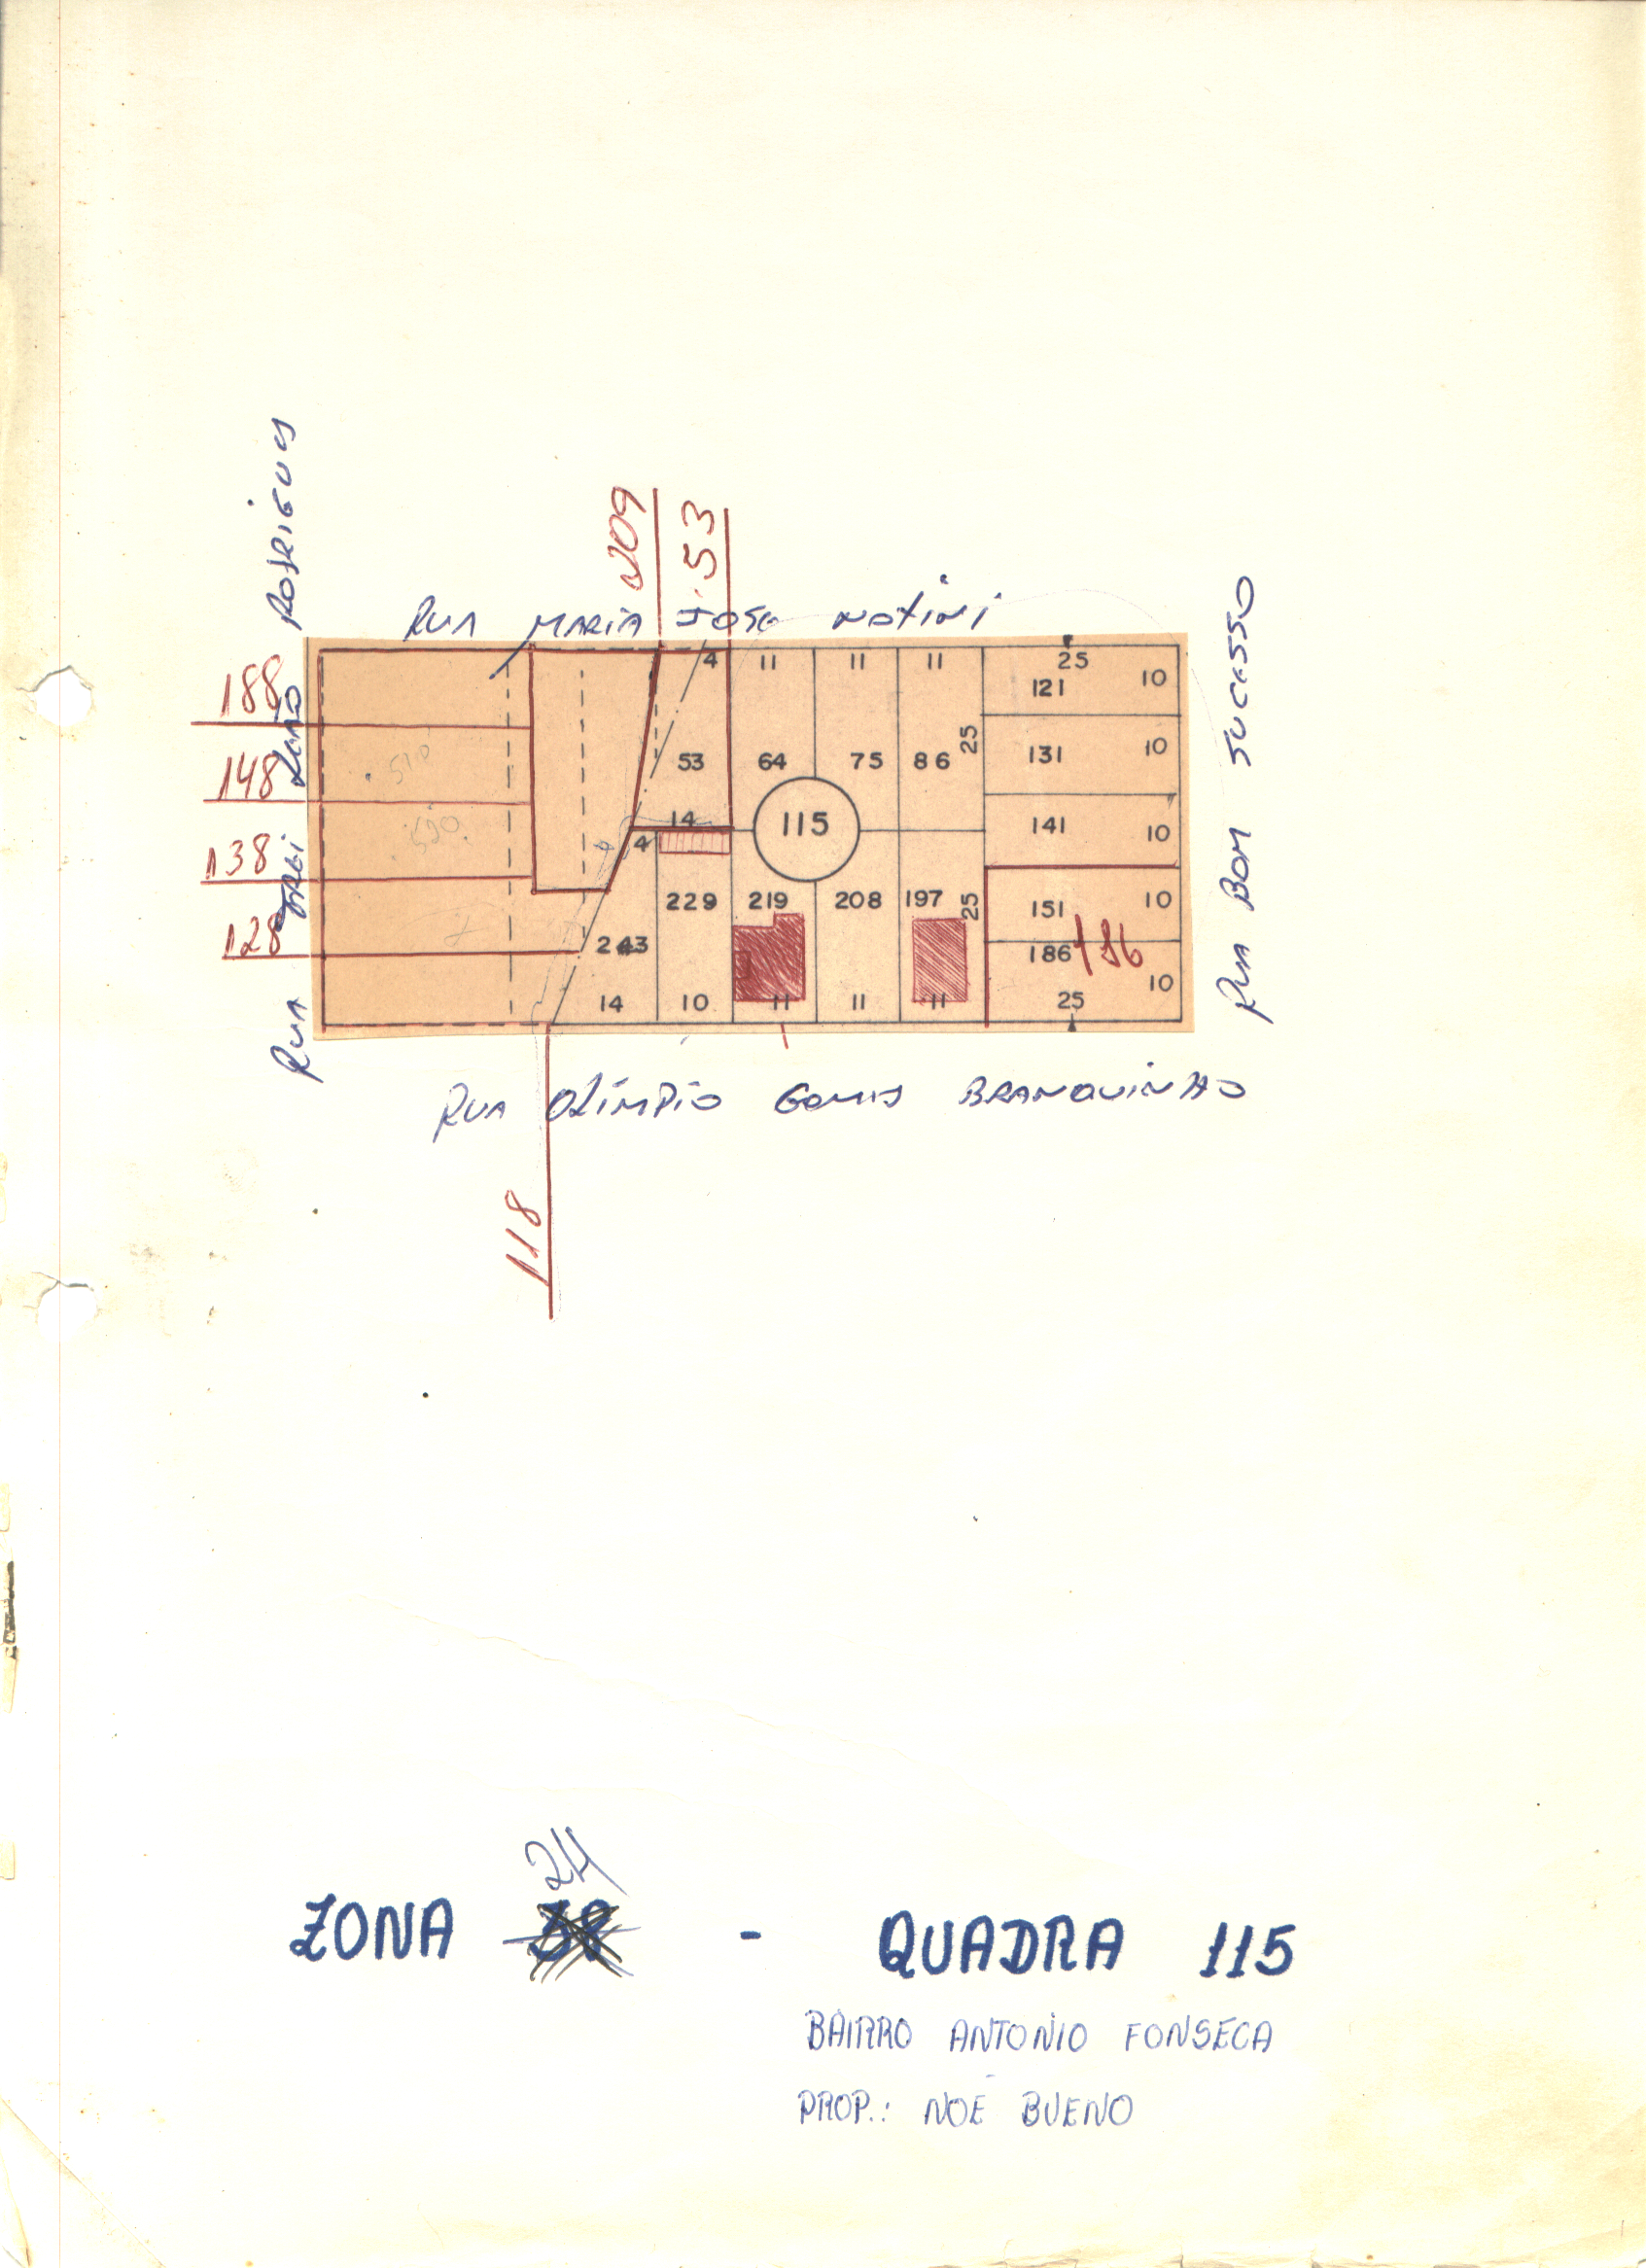 RUA MARIA JOSE NOTINI
209
53
RUA FREI LEÃO RODRIGUES
RUA BOM SUCESSO
188
148
138
128
4 11 11 11 25
121 10
25
131 10
53 64 75 86
510
520
14 115 141 10
4
229 219 208 197 25 151 10
243 186 186
14 10 11 11 11 25 10
RUA OLÍMPIO GOMES BRANQUINHO
118
24
ZONA - QUADRA 115
BAIRRO ANTONIO FONSECA
PROP.: NOÉ BUENO